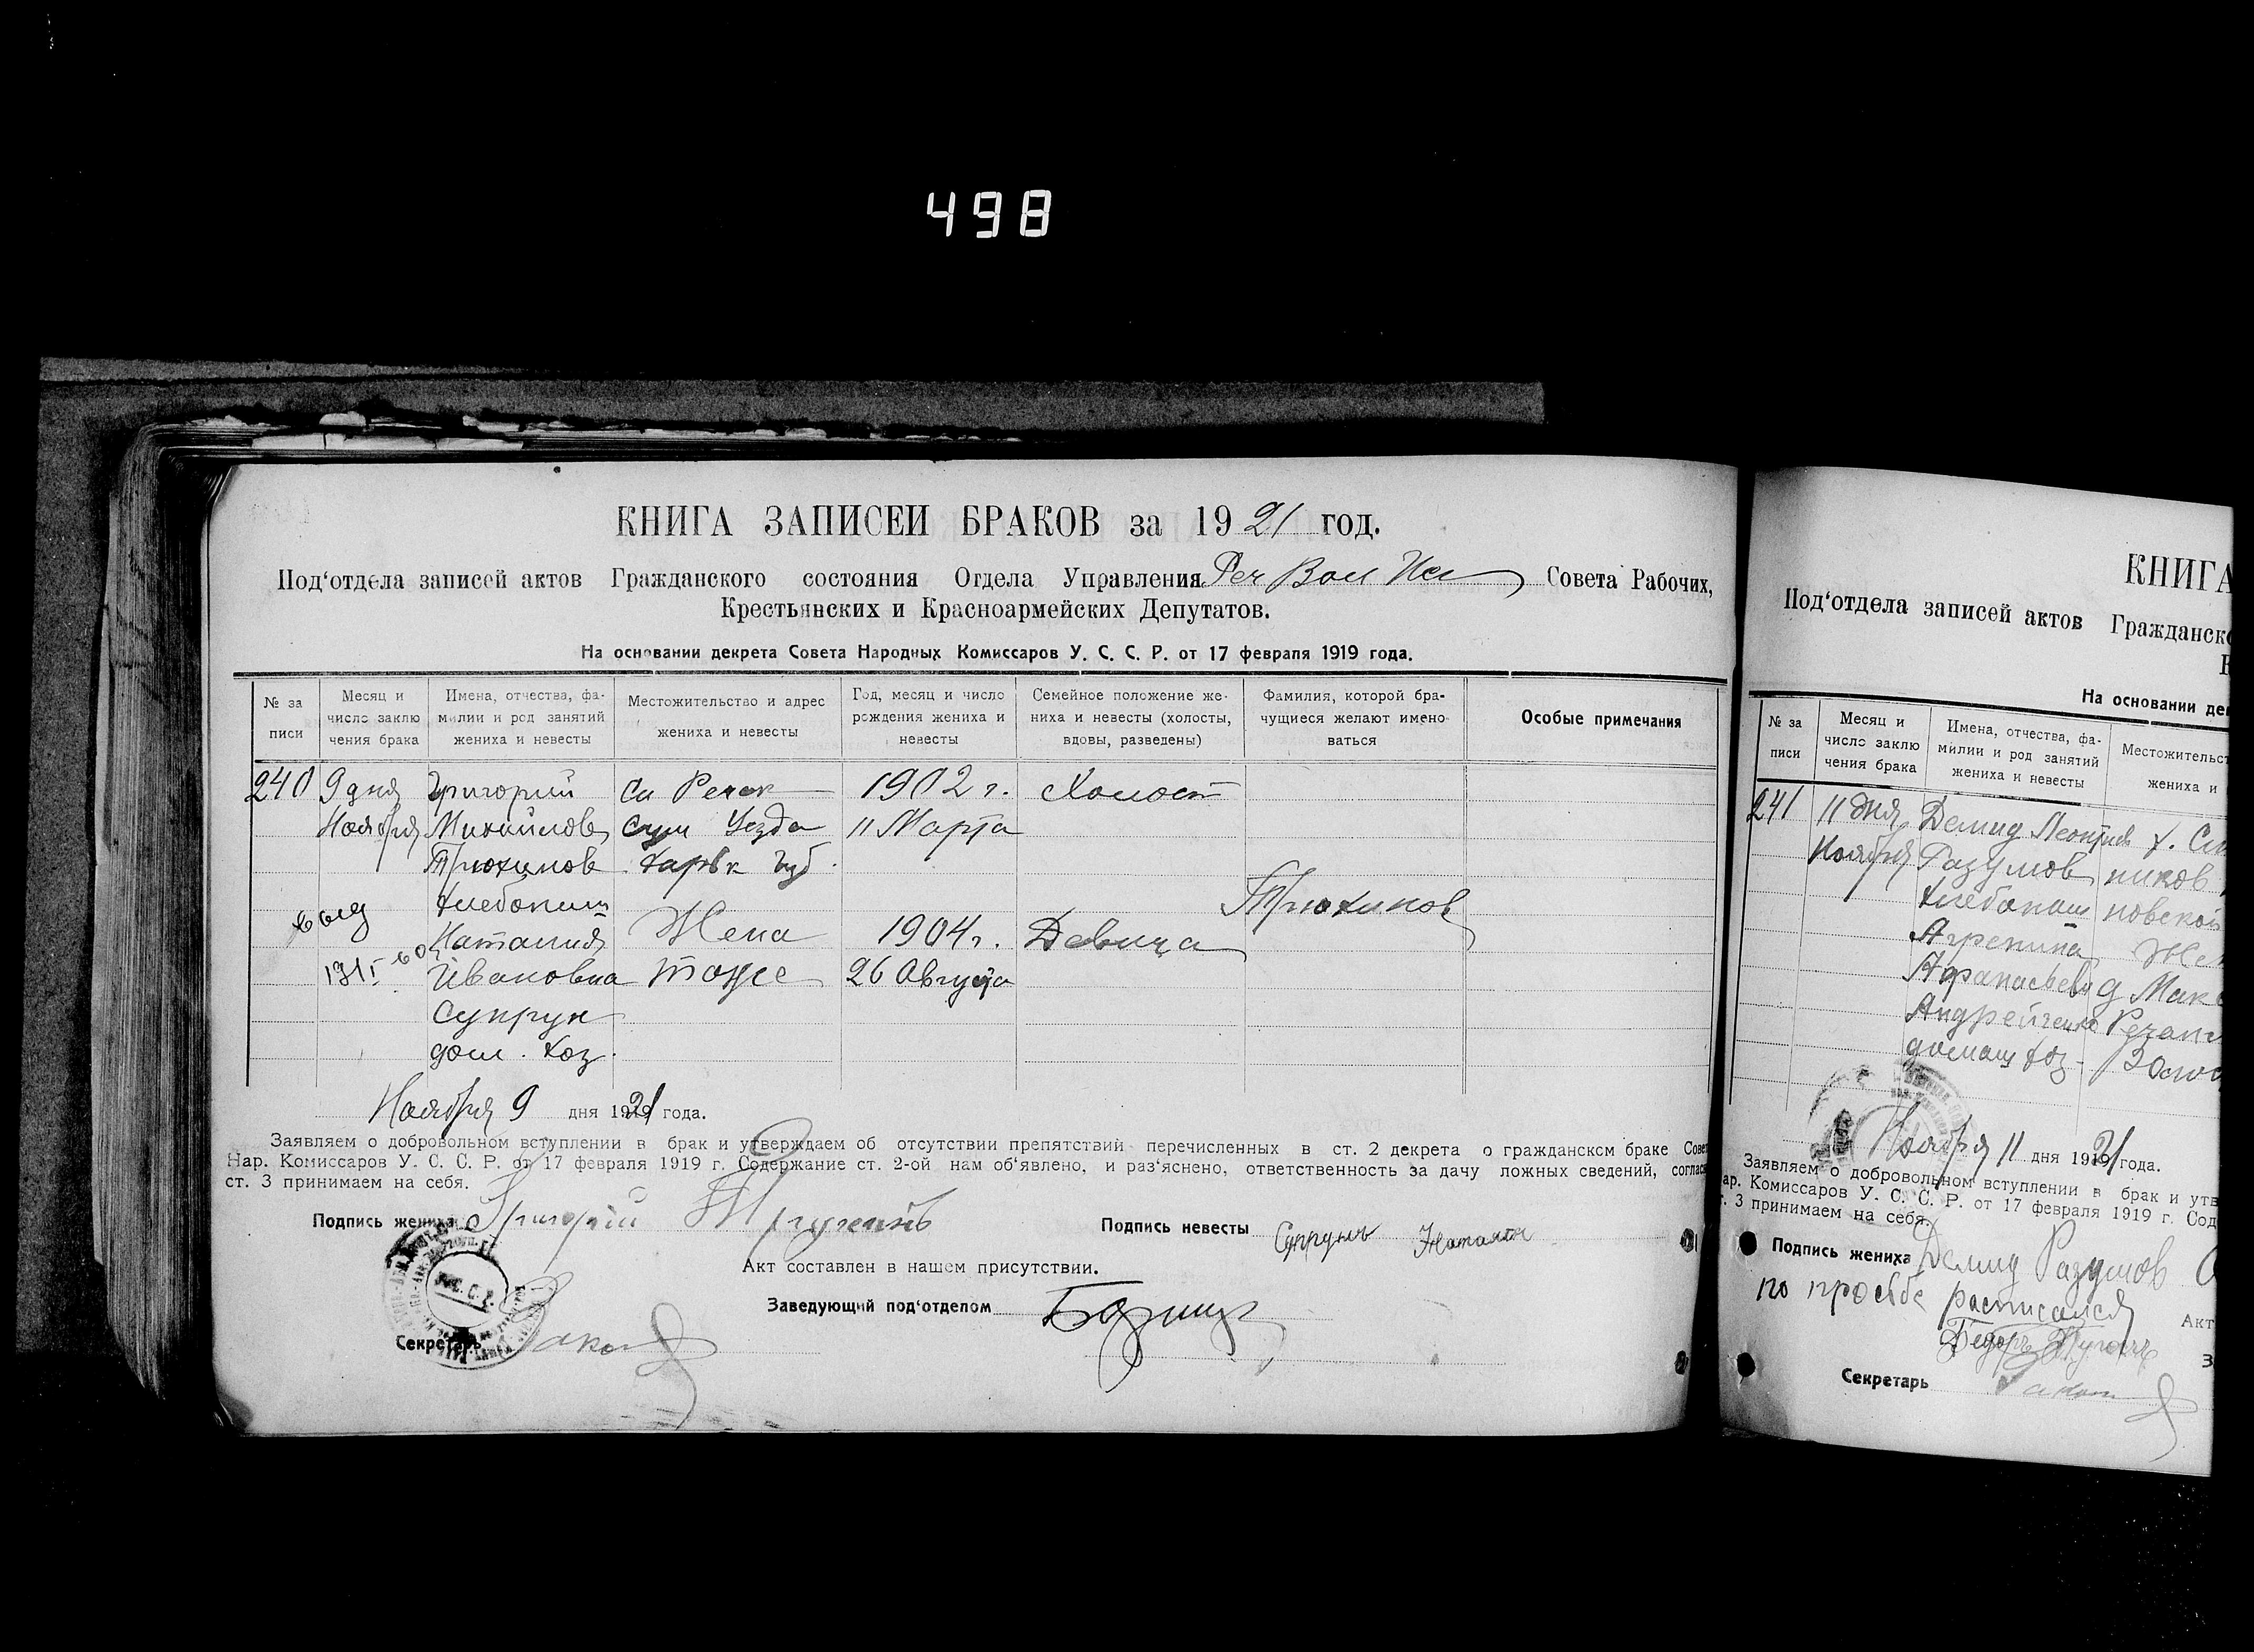 498
КНИГА ЗАПИСЕЙ БРАКОВ за 1921 год.
Под‘отдела записей актов Гражданского состояния Отдела Управления Реч Вол Ис Совета Рабочих,
Крестьянских и Красноармейских Депутатов.
На основании декрета Совета Народных Комиссаров У. С. С. Р. от 17 февраля 1919 года.
№ за писи
Месяц и число заклю чения брака
Имена, отчества, фа- милии и род занятий жениха и невесты
Местожительство и адрес жениха и невесты
Год, месяц и число рождения жениха и невесты
Семейное положение же- ниха и невесты (холосты, вдовы, разведены)
Фамилия, которой бра- чущиеся желают имено ваться
Особые примечания
240 9 дня Григорий Сл Речек 1902 г. Холост
Ноября Михайлов Сум Уезда 11 Марта
Трюхинов Харьк Губ.
Хлебопаш Трюхинов
Наталия Жена 1904 г. Девица
Ивановна тоже 26 Августа
Супрун
дом. хоз.
Ноября 9 дня 1921 года.
Заявляем о добровольном вступлении в брак и утверждаем об отсутствии препятствий перечисленных в ст. 2 декрета о гражданском браке Совет
Нар. Комиссаров У. С. С. Р. от 17 февраля 1919 г. Содержание ст. 2-ой нам об‘явлено, и раз‘яснено, ответственность за дачу ложных сведений, согласн
ст. 3 принимаем на себя.
Подпись жениха Григорий Подпись невесты Супрунъ Наталия
Акт составлен в нашем присутствии.
Заведующий под‘отделом
Секретарь
КНИГА
Под‘отдела записей актов Гражданско
На основании дек
№ за писи
Месяц и число заклю чения брака
Имена, отчества, фа- милии и род занятий жениха и невесты
Местожительст жениха и
241 11 дня Демид Леонтиев х.
Ноября Разумов
Хлебопаш новской
Агрепина
Афанасьевн
Андрейченко Речанс
домаш хоз-
Ноября 11 дня 1921 года.
Заявляем о добровольном вступлении в брак и утв
ар. Комиссаров У. С. С. Р. от 17 февраля 1919 г. Сод
т. 3 принимаем на себя.
Подпись жениха Демид Разумов
по просьбе расписался
Акт
Секретарь